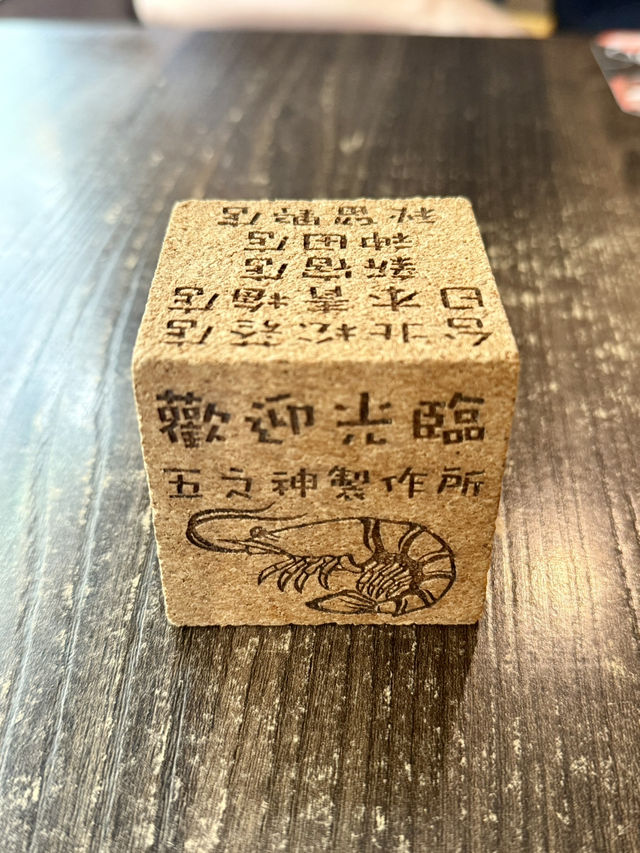 台北松菸店
日本青梅店
新宿店
神田店
秋留野店
歡迎光臨
五之神製作所